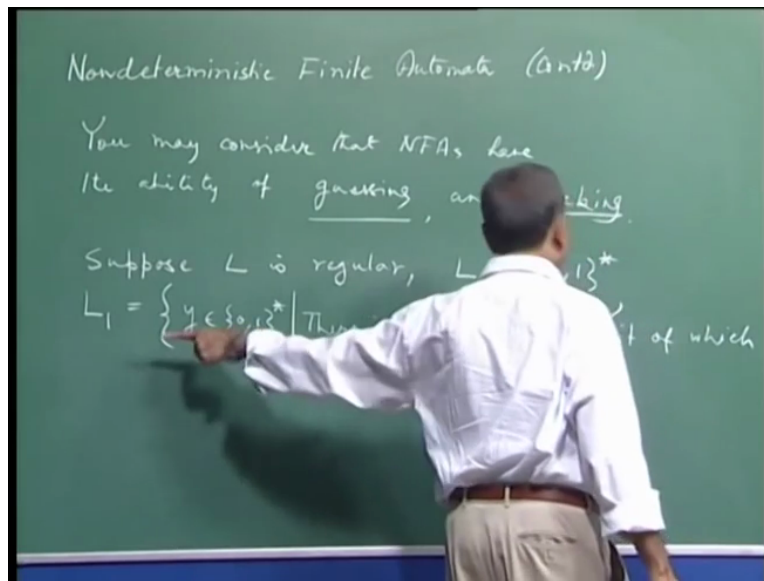 Nondeterministic Finite Automata (Contd)
You may consider that NFAs have
the ability of guessing, an king.
Suppose L is regular, L , 1}*
L₁ = { y ∈ {0,1}* | of which